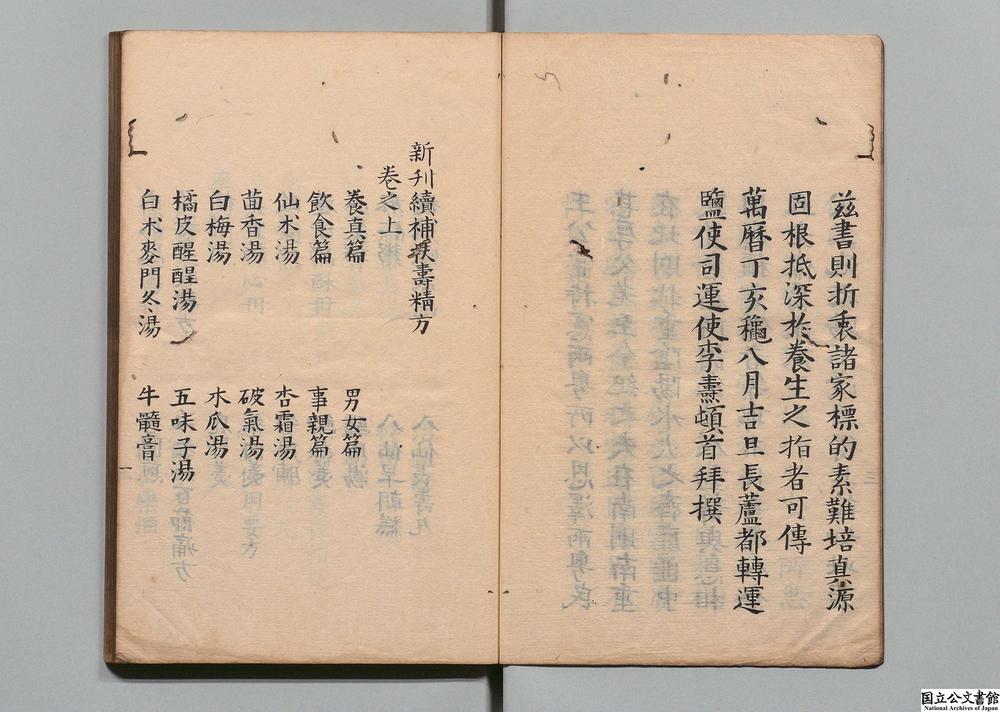 茲書則折衷諸家標的素難培真源
固根抵深於養生之指者可傳
萬曆丁亥穐八月吉旦長蘆都轉運
鹽使司運使李燾頓首拜撰
新刊續補扶壽精方
卷之上
養真篇 男女篇
飲食篇 事親篇
仙朮湯 杏霜湯
茴香湯 破氣湯
白梅湯 木瓜湯
橘皮醒酲湯 五味子湯
白朮麥門冬湯 牛髓膏
一
国立公文書館
National Archives of Japan